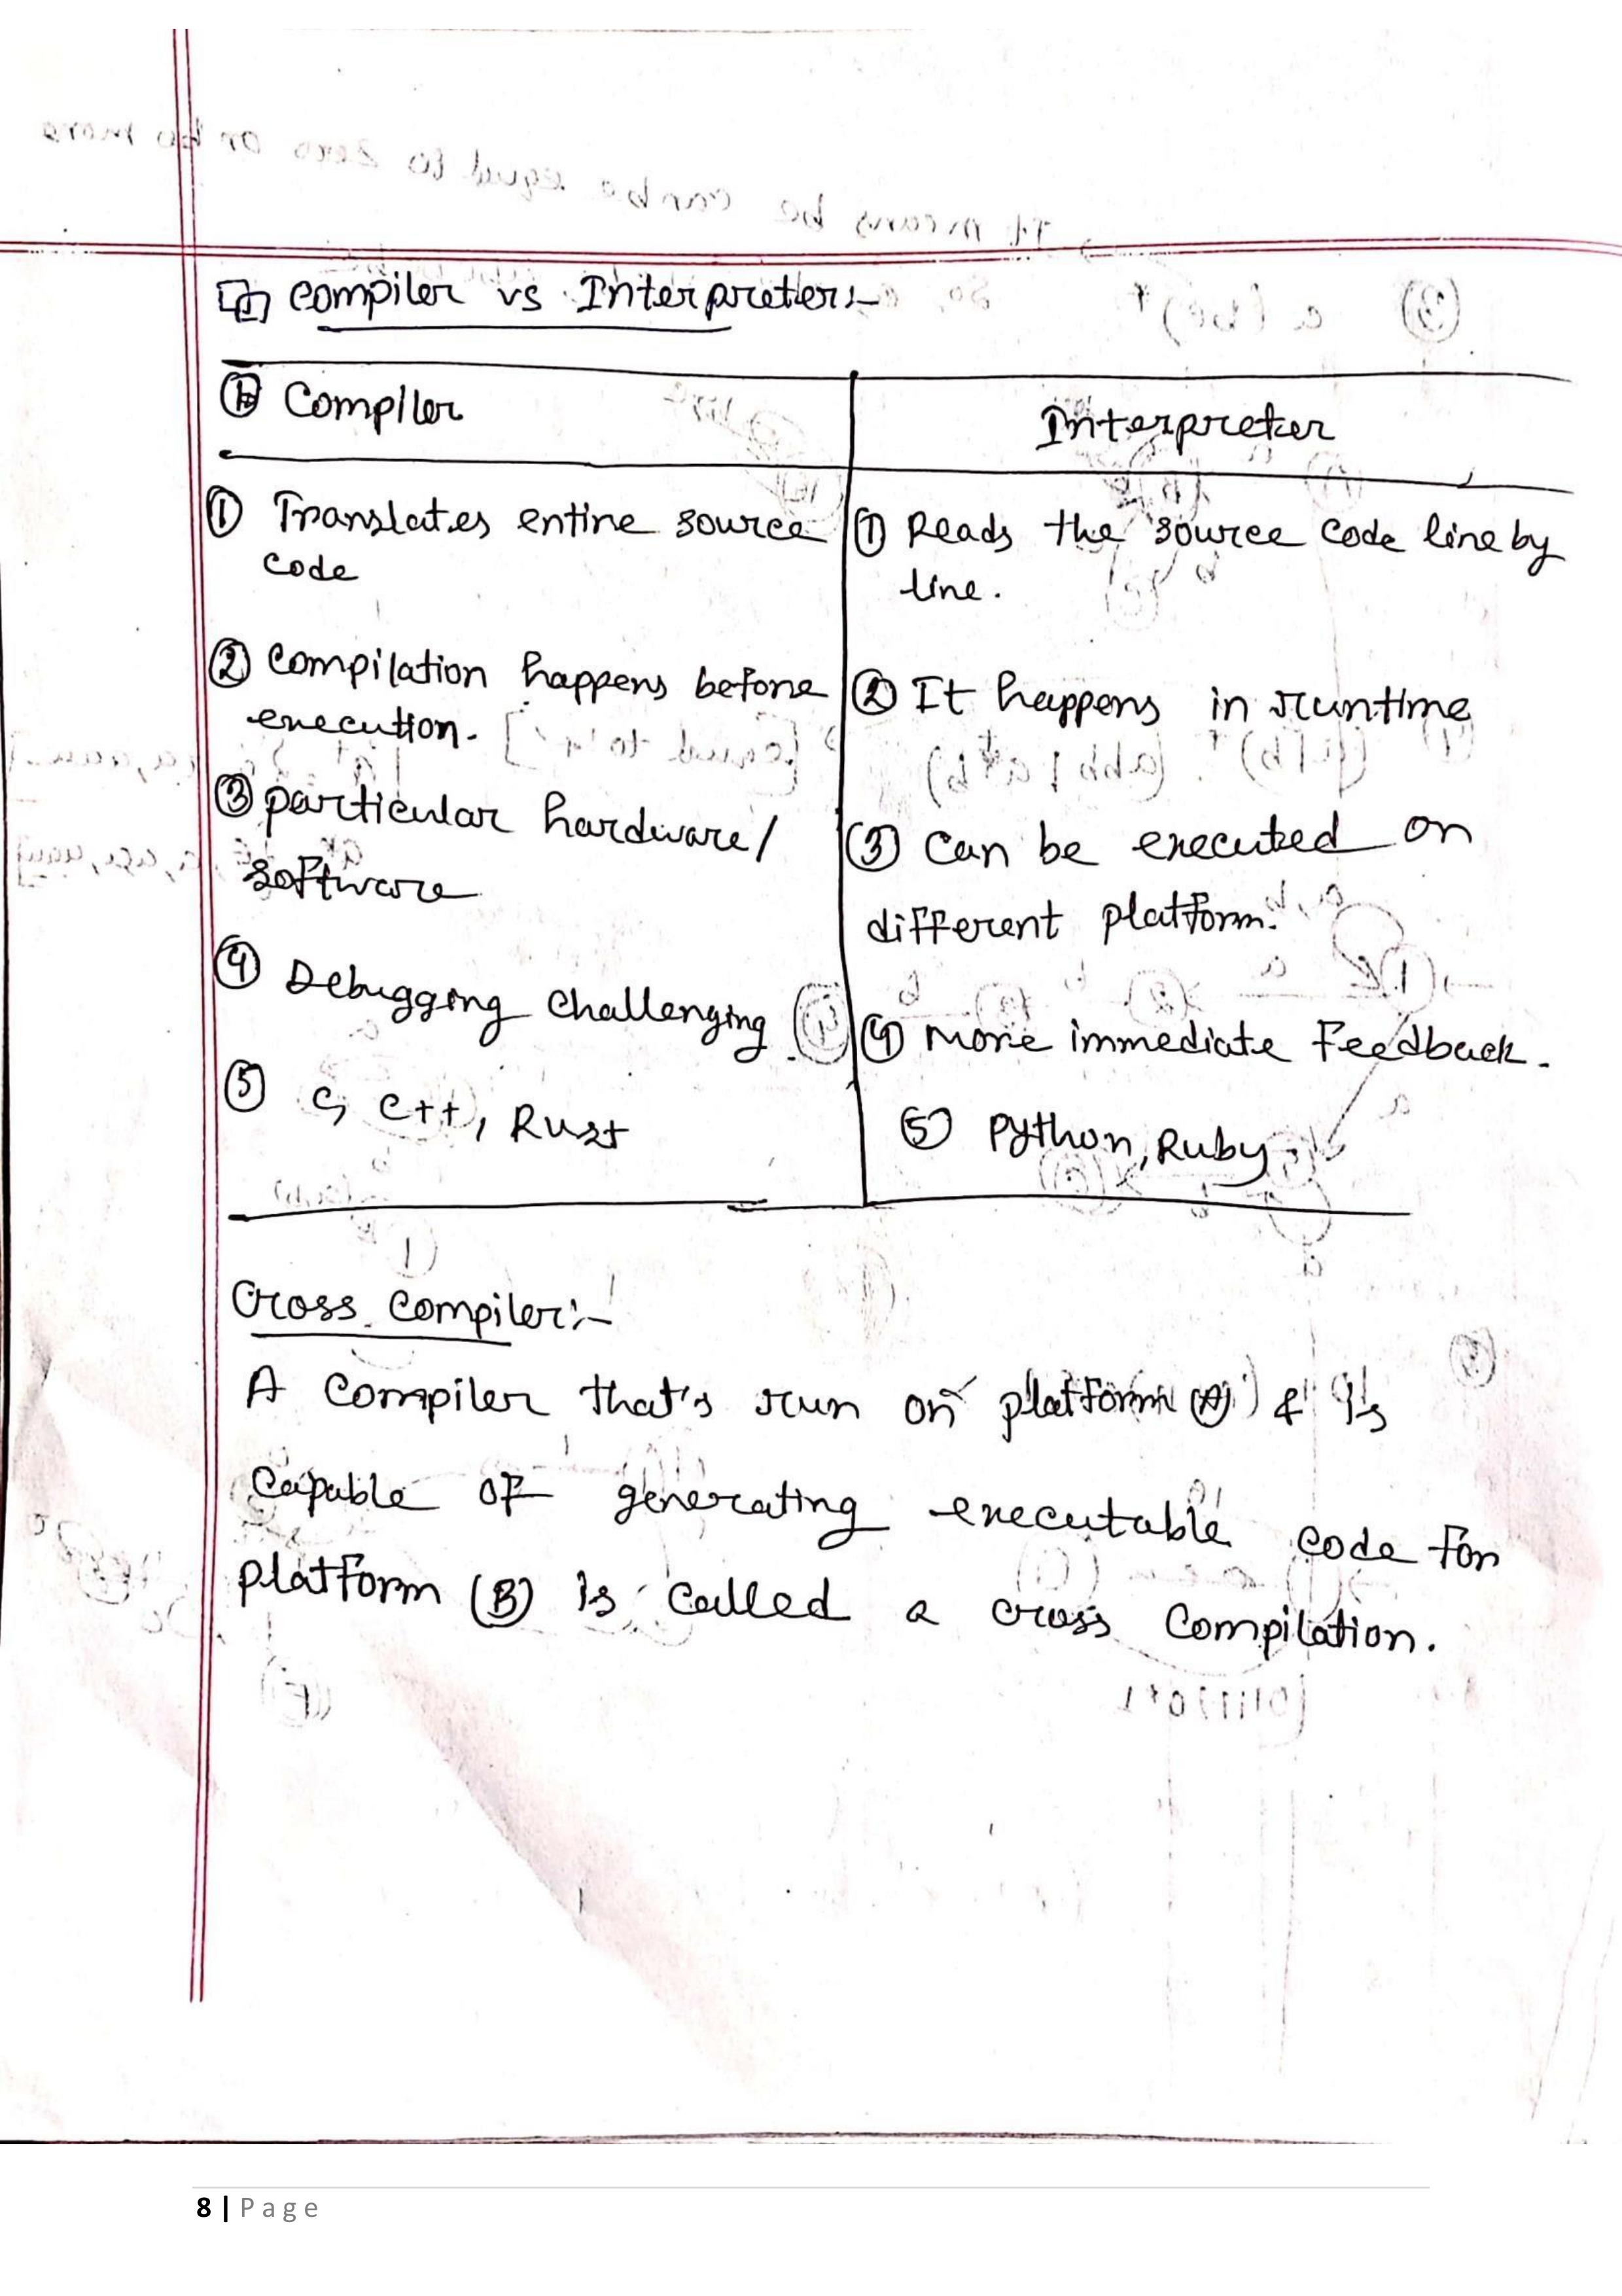 Compiler vs Interpreter:-
Compiler
Interpreter
① Translates entire source
code
① Reads the source code line by
line.
② Compilation happens before
execution.
② It happens in runtime
③ particular hardware/
software
③ Can be executed on
different platform.
④ Debugging challenging
④ More immediate Feedback.
⑤ C, C++, Rust
⑤ Python, Ruby
Cross Compiler:-
A Compiler that's run on platform (A) & is
Capable of generating executable code for
platform (B) is called a cross Compilation.
8 | Page